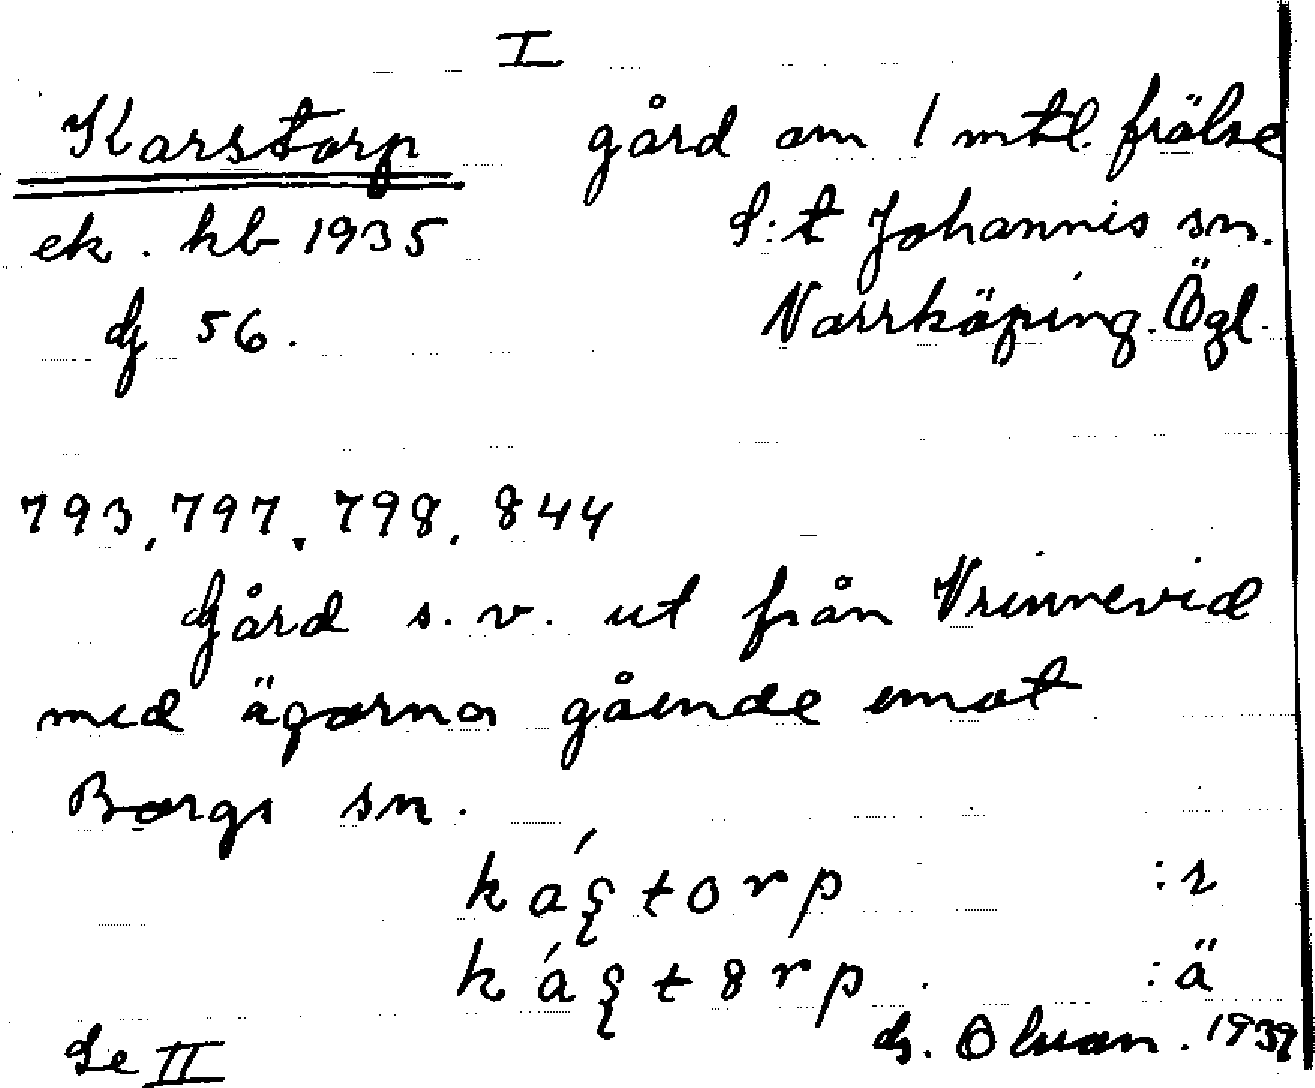 I
Karstorp gård om 1 mtl. frälse
ek. kb 1935 S:t Johannis sn.
dj 56. Norrköping. Ögl.
793, 797, 798, 844
Gård s. v. ut från Vrinnevid
med ägorna gående emot
Borgs sn.
káʂtorp :s
káʂt8rp. :ä
Se II G. Olson. 1939